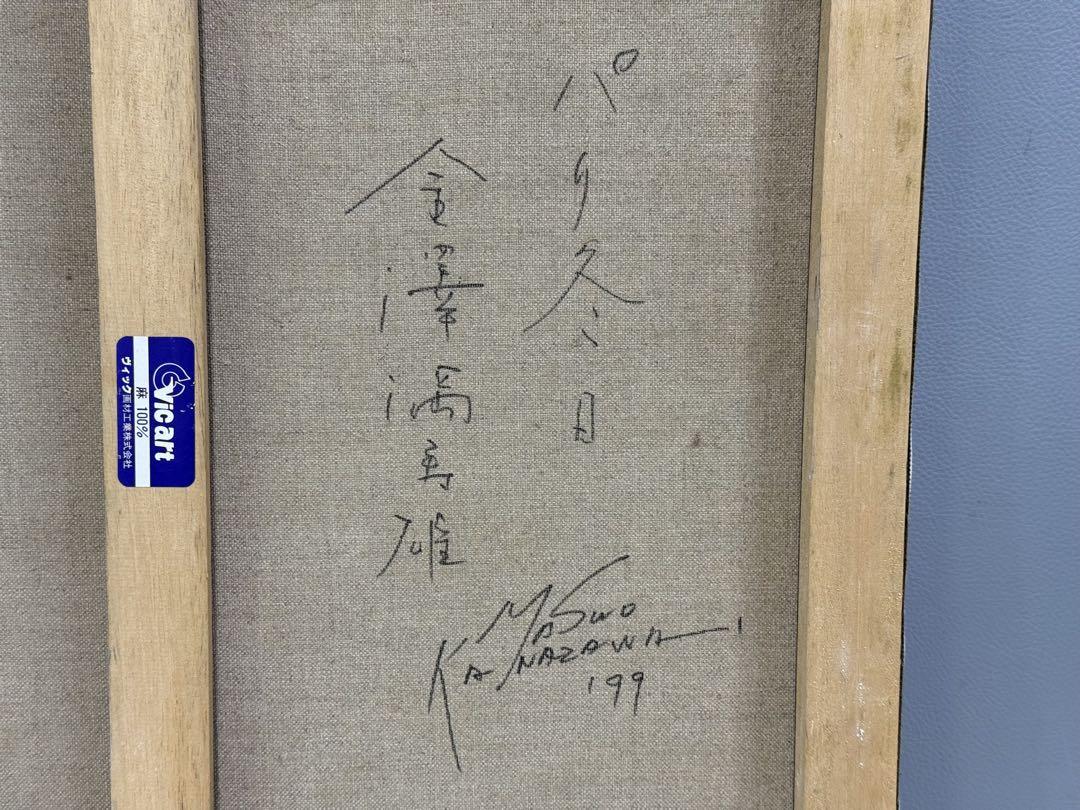 パリ冬日
金澤満寿雄
MASUO
KANAZAWA
'99
Vicart
麻 100%
ヴィック画材工業株式会社